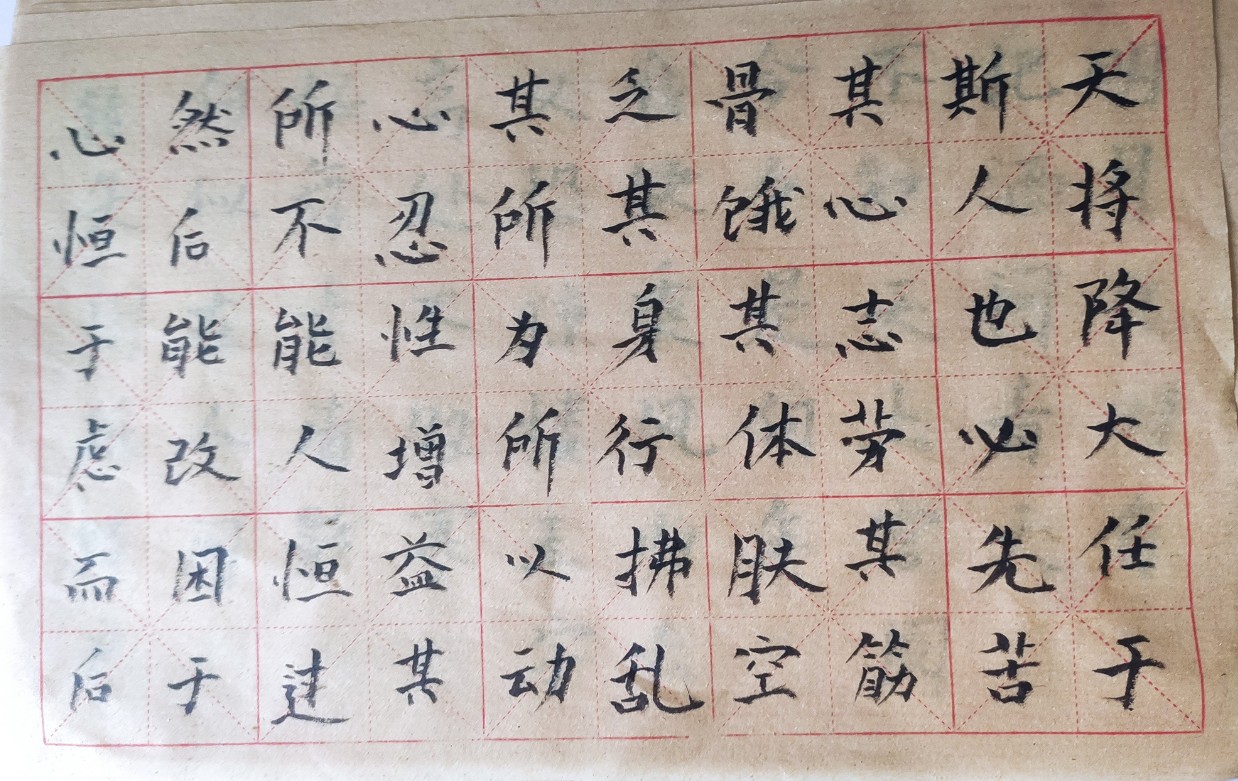 天将降大任于
斯人也必先苦
其心志劳其筋
骨饿其体肤空
乏其身行拂乱
其所为所以动
心忍性增益其
所不能人恒过
然后能改困于
心恒于虑而后